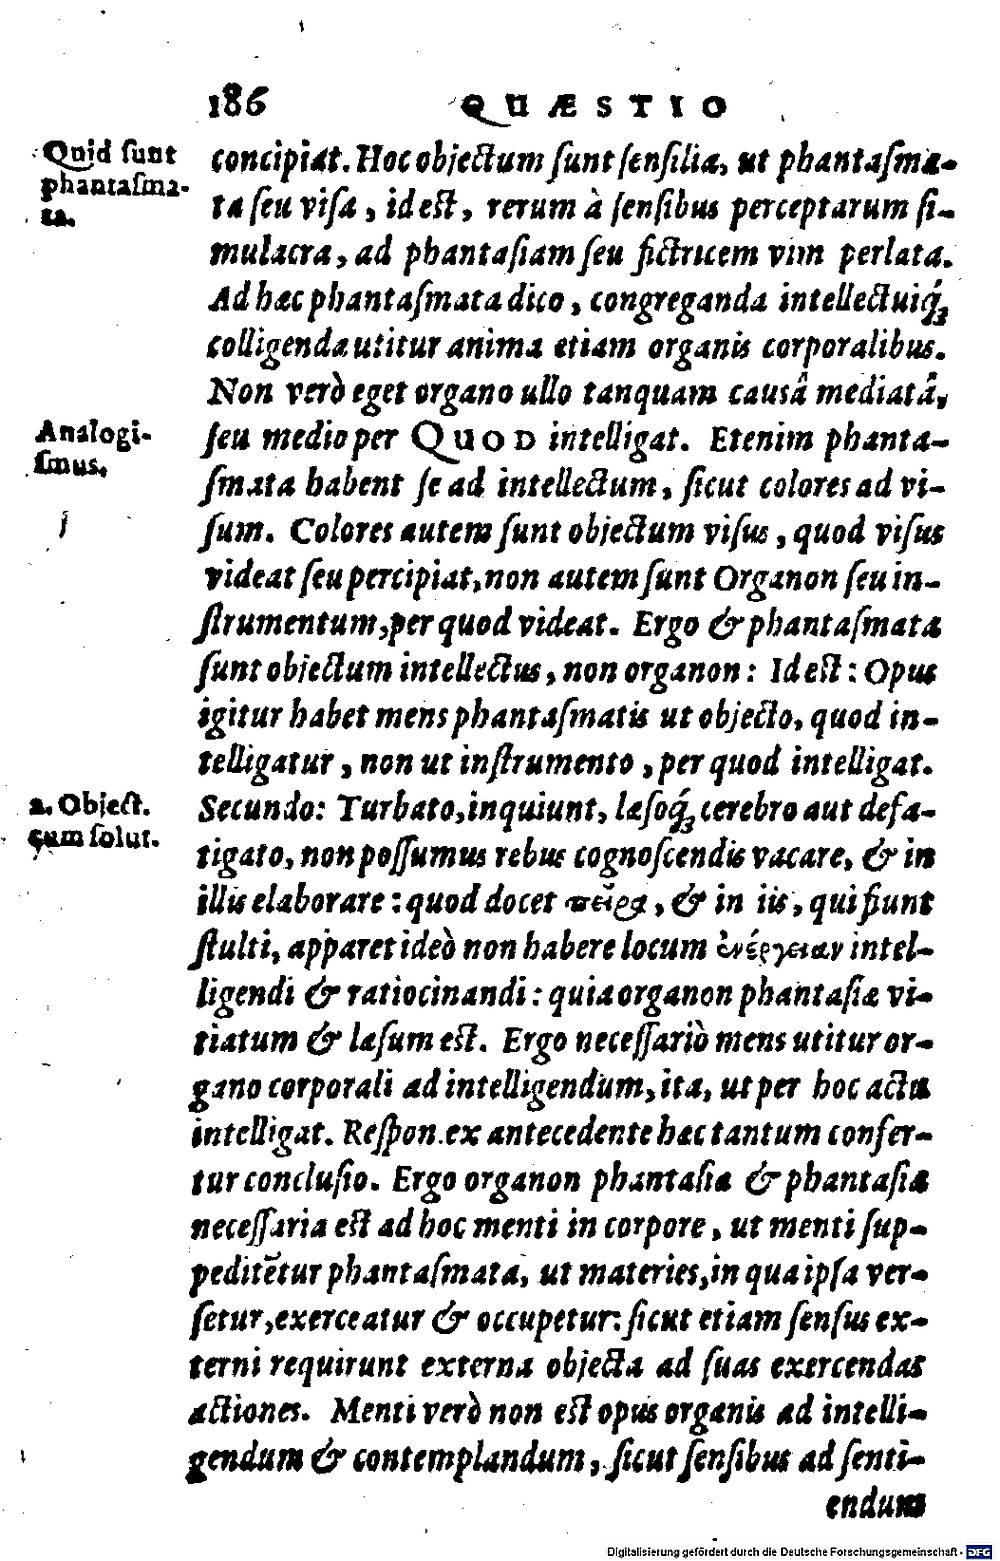 186 QUÆSTIO
Quid ſunt
phantaſma-
ta.
concipiat. Hoc objectum ſunt ſenſilia, ut phantaſma-
ta ſeu viſa, id eſt, rerum à ſenſibus perceptarum ſi-
mulacra, ad phantaſiam ſeu fictricem vim perlata.
Ad hæc phantaſmata dico, congreganda intellectuiq́;
colligenda utitur anima etiam organis corporalibus.
Non verò eget organo ullo tanquam causâ mediatâ,
Analogi-
ſmus.
ſeu medio per QUOD intelligat. Etenim phanta-
ſmata habent ſe ad intellectum, ſicut colores ad vi-
ſum. Colores autem ſunt objectum viſus, quod viſus
videat ſeu percipiat, non autem ſunt Organon ſeu in-
ſtrumentum, per quod videat. Ergo & phantaſmata
ſunt objectum intellectus, non organon: Id eſt: Opus
igitur habet mens phantaſmatis ut objecto, quod in-
telligatur, non ut inſtrumento, per quod intelligat.
2. Object.
cum ſolut.
Secundo: Turbato, inquiunt, læſoq́; cerebro aut defa-
tigato, non poſſumus rebus cognoſcendis vacare, & in
illis elaborare: quod docet πεῖρα, & in iis, qui fiunt
ſtulti, apparet ideò non habere locum ἐνέργειαν intel-
ligendi & ratiocinandi: quia organon phantaſiæ vi-
tiatum & læſum eſt. Ergo neceſſariò mens utitur or-
gano corporali ad intelligendum, ita, ut per hoc actu
intelligat. Reſpon. ex antecedente hæc tantum confer-
tur concluſio. Ergo organon phantaſiæ & phantaſia
neceſſaria eſt ad hoc menti in corpore, ut menti ſup-
peditẽtur phantaſmata, ut materies, in qua ipſa ver-
ſetur, exerceatur & occupetur: ſicut etiam ſenſus ex-
terni requirunt externa objecta ad ſuas exercendas
actiones. Menti verò non eſt opus organis ad intelli-
gendum & contemplandum, ſicut ſenſibus ad ſenti-
endum
Digitalisierung gefördert durch die Deutsche Forschungsgemeinschaft - DFG